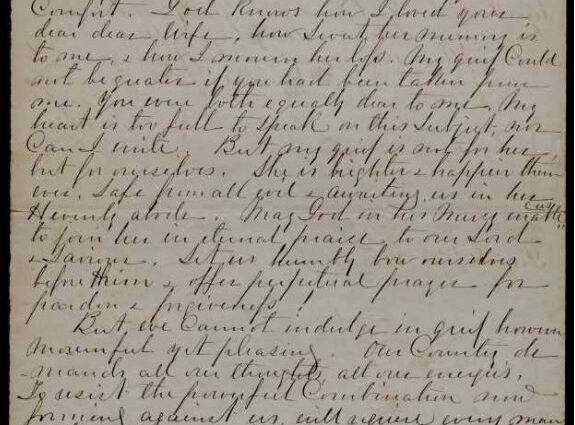 Comfort. God knows how I loved your
dear dear Wife, how sweet her memory is
to me, & how I mourn her loss. My grief Could
not be greater if you had been taken from
me. You were both equally dear to me. My
heart is too full to speak on this subject, nor
Can I write. But my grief is not for her,
but for ourselves. She is brighter & happier than
ever, safe from all evil & awaiting us in her
Heavenly abode. May God in his Mercy enable us
to join her in eternal praise to our Lord
& Saviour. Let us humbly bow ourselves
before Him & offer perpetual prayer for
pardon & forgiveness!
But we Cannot indulge in grief however
mournful yet pleasing. Our Country de
mands all our thoughts, all our energies.
To resist the powerful Combination now
forming against us, will require every man